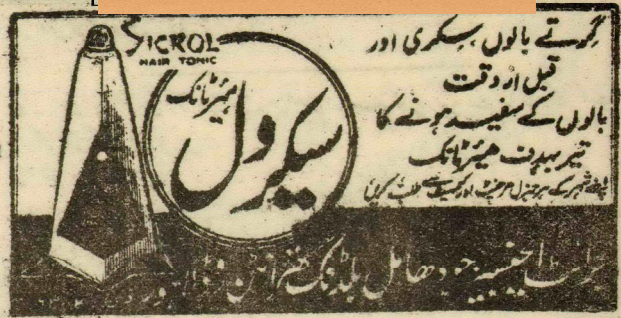 SICROL
HAIR TONIC
سیکرول
ہیئر ٹانک
گرتے بالوں، سکری اور
قبل از وقت
بالوں کے سفید ہونے کا
تیر بہدف ہیئر ٹانک
اپنے شہر کے ہر جنرل مرچنٹ اور کیمسٹ سے طلب کریں
بلڈنگ